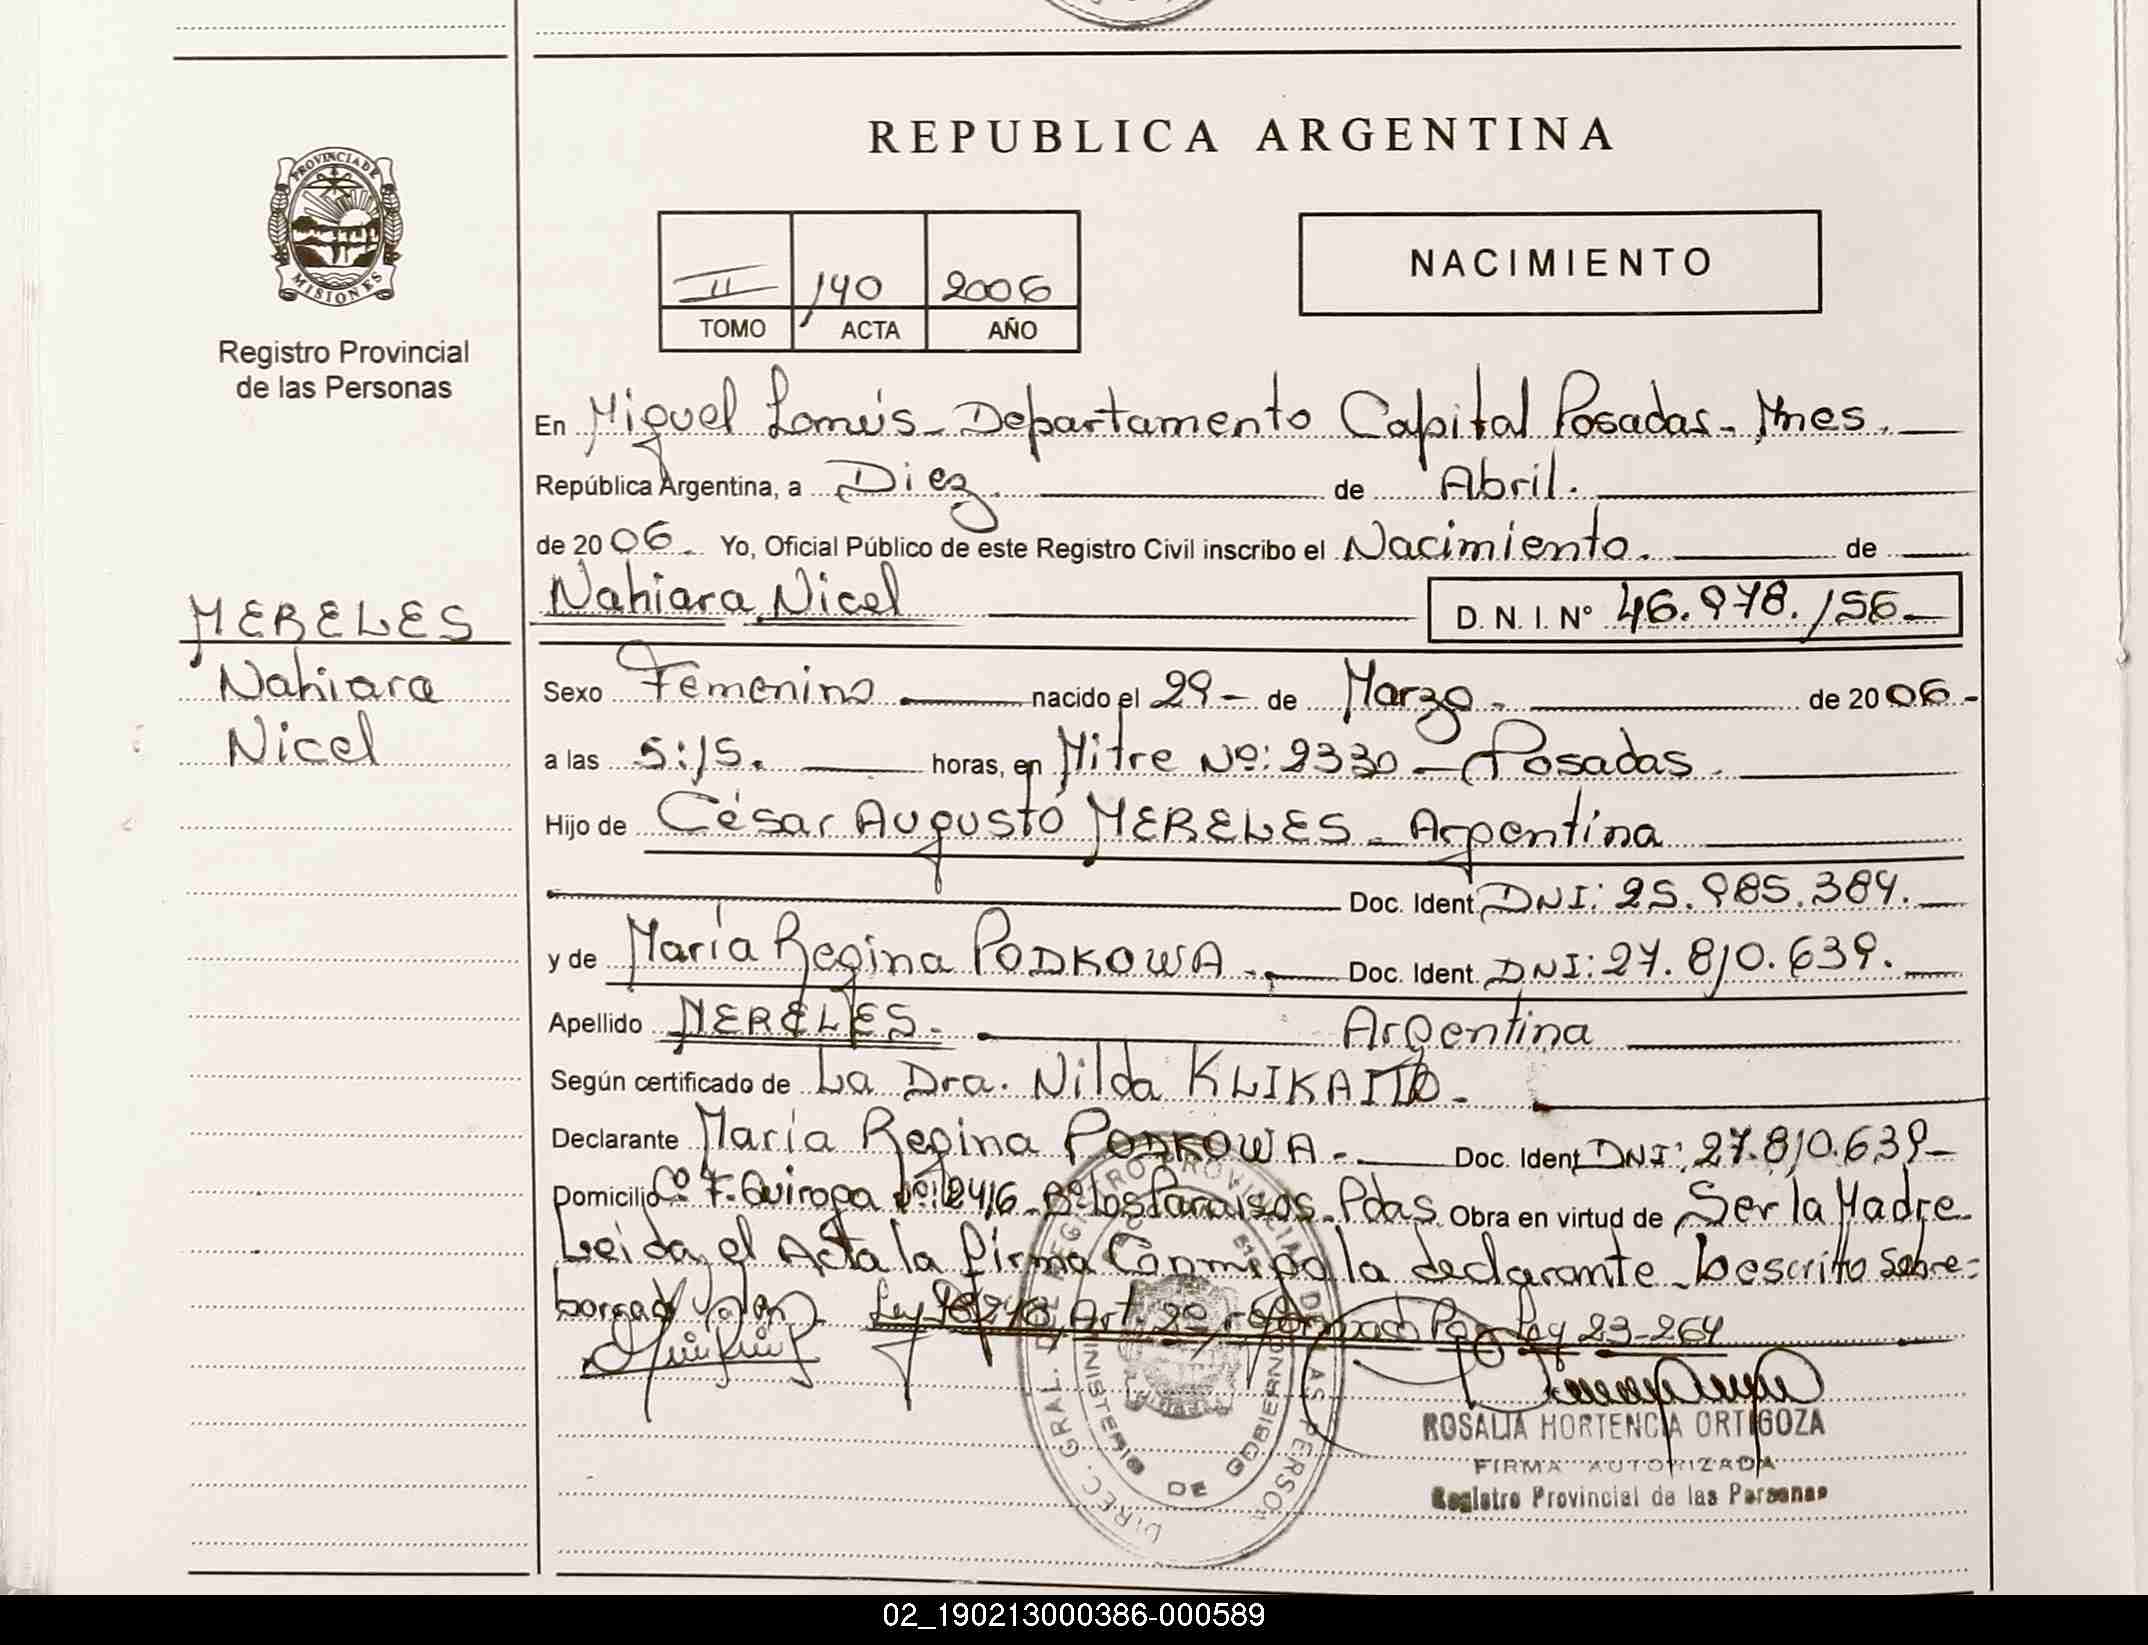 REPUBLICA ARGENTINA
PROVINCIA DE
MISIONES
Registro Provincial
de las Personas
II 140 2006
TOMO ACTA AÑO
NACIMIENTO
En Miguel Lanús - Departamento Capital Posadas - Mnes.
República Argentina, a Diez de Abril.
de 2006. Yo, Oficial Público de este Registro Civil inscribo el Nacimiento. de
Nahiara Nicel D. N. I. Nº 46.978.156
MERELES
Nahiara
Nicel
Sexo Femenino nacido el 29 - de Marzo - de 2006 -
a las 5:15. horas, en Mitre Nº: 2330 - Posadas
Hijo de César Augusto MERELES - Argentina
Doc. Ident. DNI: 25.985.384.
y de María Regina PODKOWA - Doc. Ident. DNI: 27.810.639.
Apellido MERELES. Argentina
Según certificado de La Dra. Nilda -
Declarante María Regina PODKOWA - Doc. Ident. DNI: 27.810.639 -
Domicilio Cº F. Quiroga Nº: 2416 - Bº los Paraisos - Pdas Obra en virtud de Ser la Madre
Leida el Acta la firma Conmigo la declarante - Lo escrito sobre=
borrado Ley 18248 Art. 2º reformado Por Ley 23-264
ROSALIA HORTENCIA ORTIGOZA
FIRMA AUTORIZADA
Registro Provincial de las Personas
DIREC. GRAL. DE REGISTRO PROVINCIAL DE LAS PERSONAS
MINISTERIO DE GOBIERNO
02_190213000386-000589